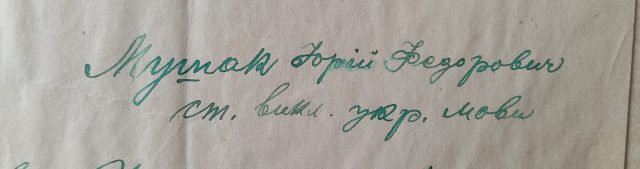 Мушак Юрій Федорович
ст. викл. укр. мови